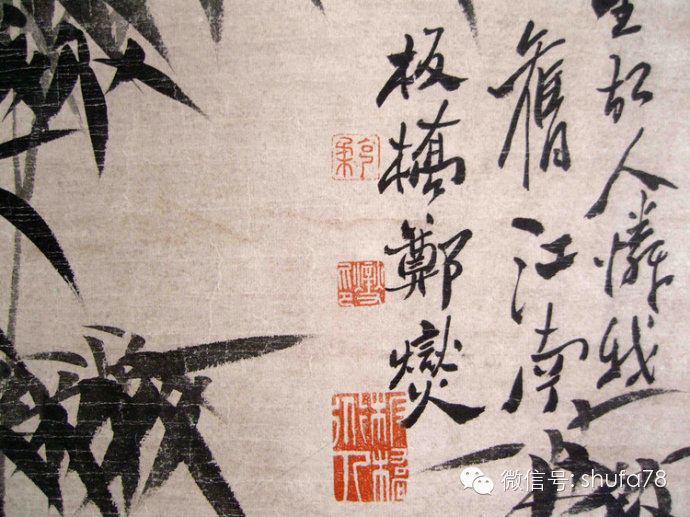 故人憐我
舊江南
板橋鄭燮
微信号: shufa78